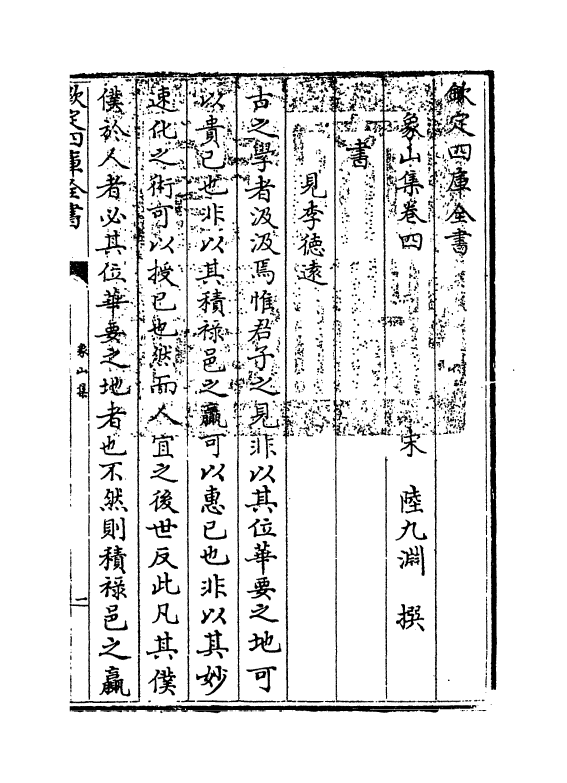 欽定四庫全書
象山集卷四
宋 陸九淵 撰
書
見李德遠
古之學者汲汲焉惟君子之見非以其位華要之地可
以貴己也非以其積祿邑之贏可以惠己也非以其妙
速化之術可以授己也然而人宜之後世反此凡其僕
僕於人者必其位華要之地者也不然則積祿邑之贏
欽定四庫全書
象山集
一